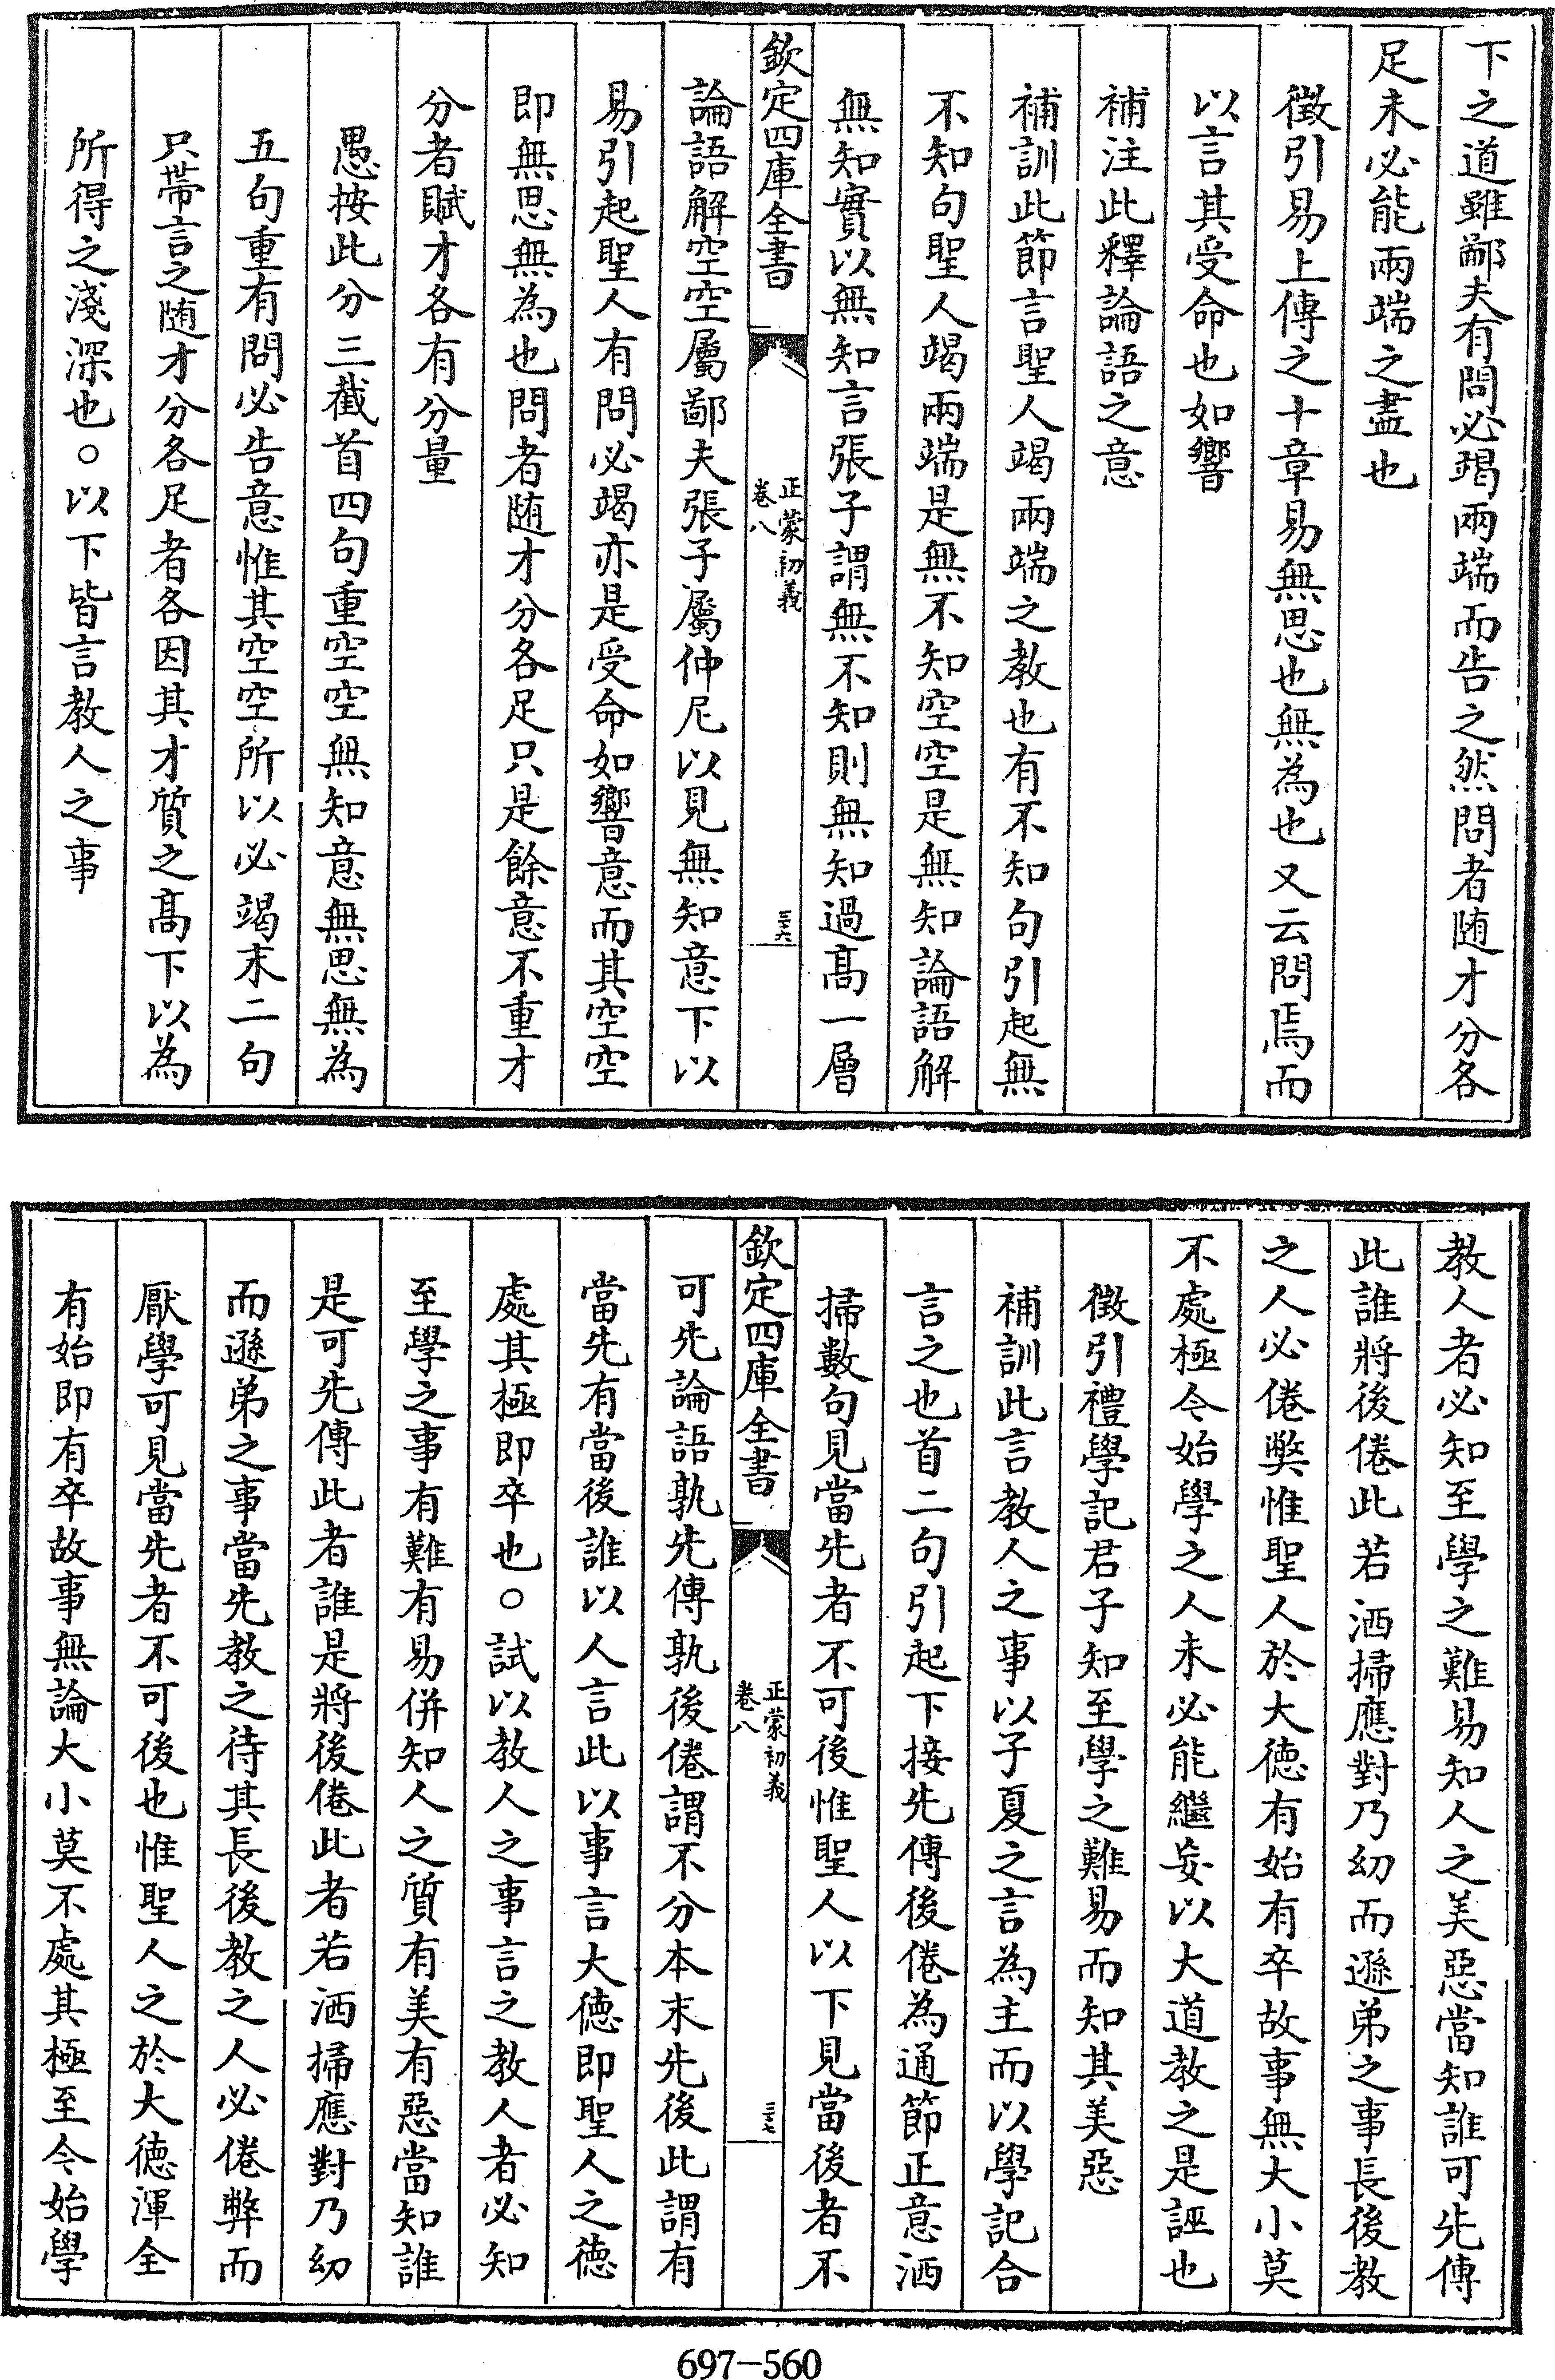 下之道雖鄙夫有問必竭兩端而告之然問者随才分各
足未必能兩端之盡也
徴引易上傳之十章易無思也無為也又云問焉而
以言其受命也如響
補注此釋論語之意
補訓此節言聖人竭兩端之教也有不知句引起無
不知句聖人竭兩端是無不知空空是無知論語解
無知實以無知言張子謂無不知則無知過髙一層
欽定四庫全書
正蒙初義
卷八
三六
論語解空空屬鄙夫張子屬仲尼以見無知意下以
易引起聖人有問必竭亦是受命如響意而其空空
即無思無為也問者随才分各足只是餘意不重才
分者賦才各有分量
愚按此分三截首四句重空空無知意無思無為
五句重有問必告意惟其空空所以必竭末二句
只帶言之随才分各足者各因其才質之髙下以為
所得之淺深也○以下皆言教人之事
教人者必知至學之難易知人之美惡當知誰可先傳
此誰將後倦此若洒掃應對乃幼而遜弟之事長後教
之人必倦獘惟聖人於大徳有始有卒故事無大小莫
不處極今始學之人未必能繼妄以大道教之是誣也
徴引禮學記君子知至學之難易而知其美惡
補訓此言教人之事以子夏之言為主而以學記合
言之也首二句引起下接先傳後倦為通節正意洒
掃數句見當先者不可後惟聖人以下見當後者不
欽定四庫全書
正蒙初義
卷八
三七
可先論語孰先傳孰後倦謂不分本末先後此謂有
當先有當後誰以人言此以事言大徳即聖人之徳
處其極即卒也○試以教人之事言之教人者必知
至學之事有難有易併知人之質有美有惡當知誰
是可先傳此者誰是將後倦此者若洒掃應對乃幼
而遜弟之事當先教之待其長後教之人必倦弊而
厭學可見當先者不可後也惟聖人之於大徳渾全
有始即有卒故事無論大小莫不處其極至今始學
697-560